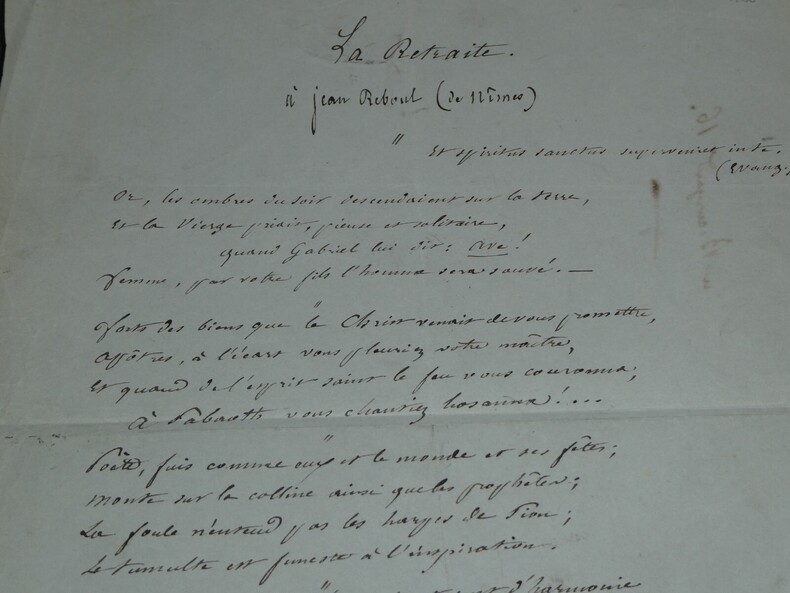 La Retraite.
à jean Reboul (de Nîmes)
"
Et spiritus sanctus superveniet in te.
(Evang.
Or, les ombres du soir descendaient sur la terre,
Et la Vierge priait, pieuse et solitaire,
quand Gabriel lui dit: ave!
femme, par votre fils l'homme sera sauvé. —
"
forts des biens que le Christ venait de vous promettre,
apôtres, à l'écart vous pleuriez votre maître,
Et quand de l'esprit saint le feu vous couronna,
à Sabaoth vous chantiez hosanna!...
"
Poëte, fuis comme eux et le monde et ses fêtes;
monte sur la colline ainsi que les prophètes;
La foule n'entend pas les harpes de Sion;
Le tumulte est funeste à l'inspiration.
"
et d'harmonie